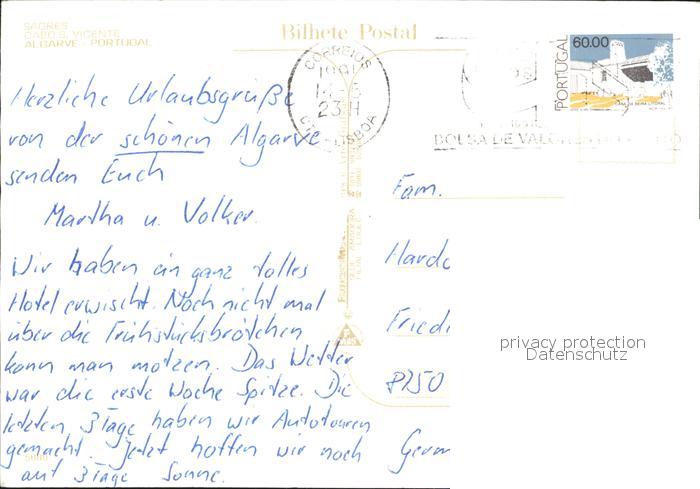 SAGRES
CABO S. VICENTE
ALGARVE - PORTUGAL
Bilhete Postal
CORREIOS
1991
23 H
LISBOA
60.00
PORTUGAL
BOLSA DE VALORES
Herzliche Urlaubsgrüße
von der schönen Algarve
senden Euch
Martha u. Volker.
Wir haben ein ganz tolles
Hotel erwischt. Noch nicht mal
über die Frühstücksbrötchen
kann man motzen. Das Wetter
war die erste Woche Spitze. Die
letzten 3 Tage haben wir Autotouren
gemacht. Jetzt hoffen wir noch
auf 3 Tage Sonne.
Fam.
Hardc
Friedi
8250
Germ
privacy protection
Datenschutz